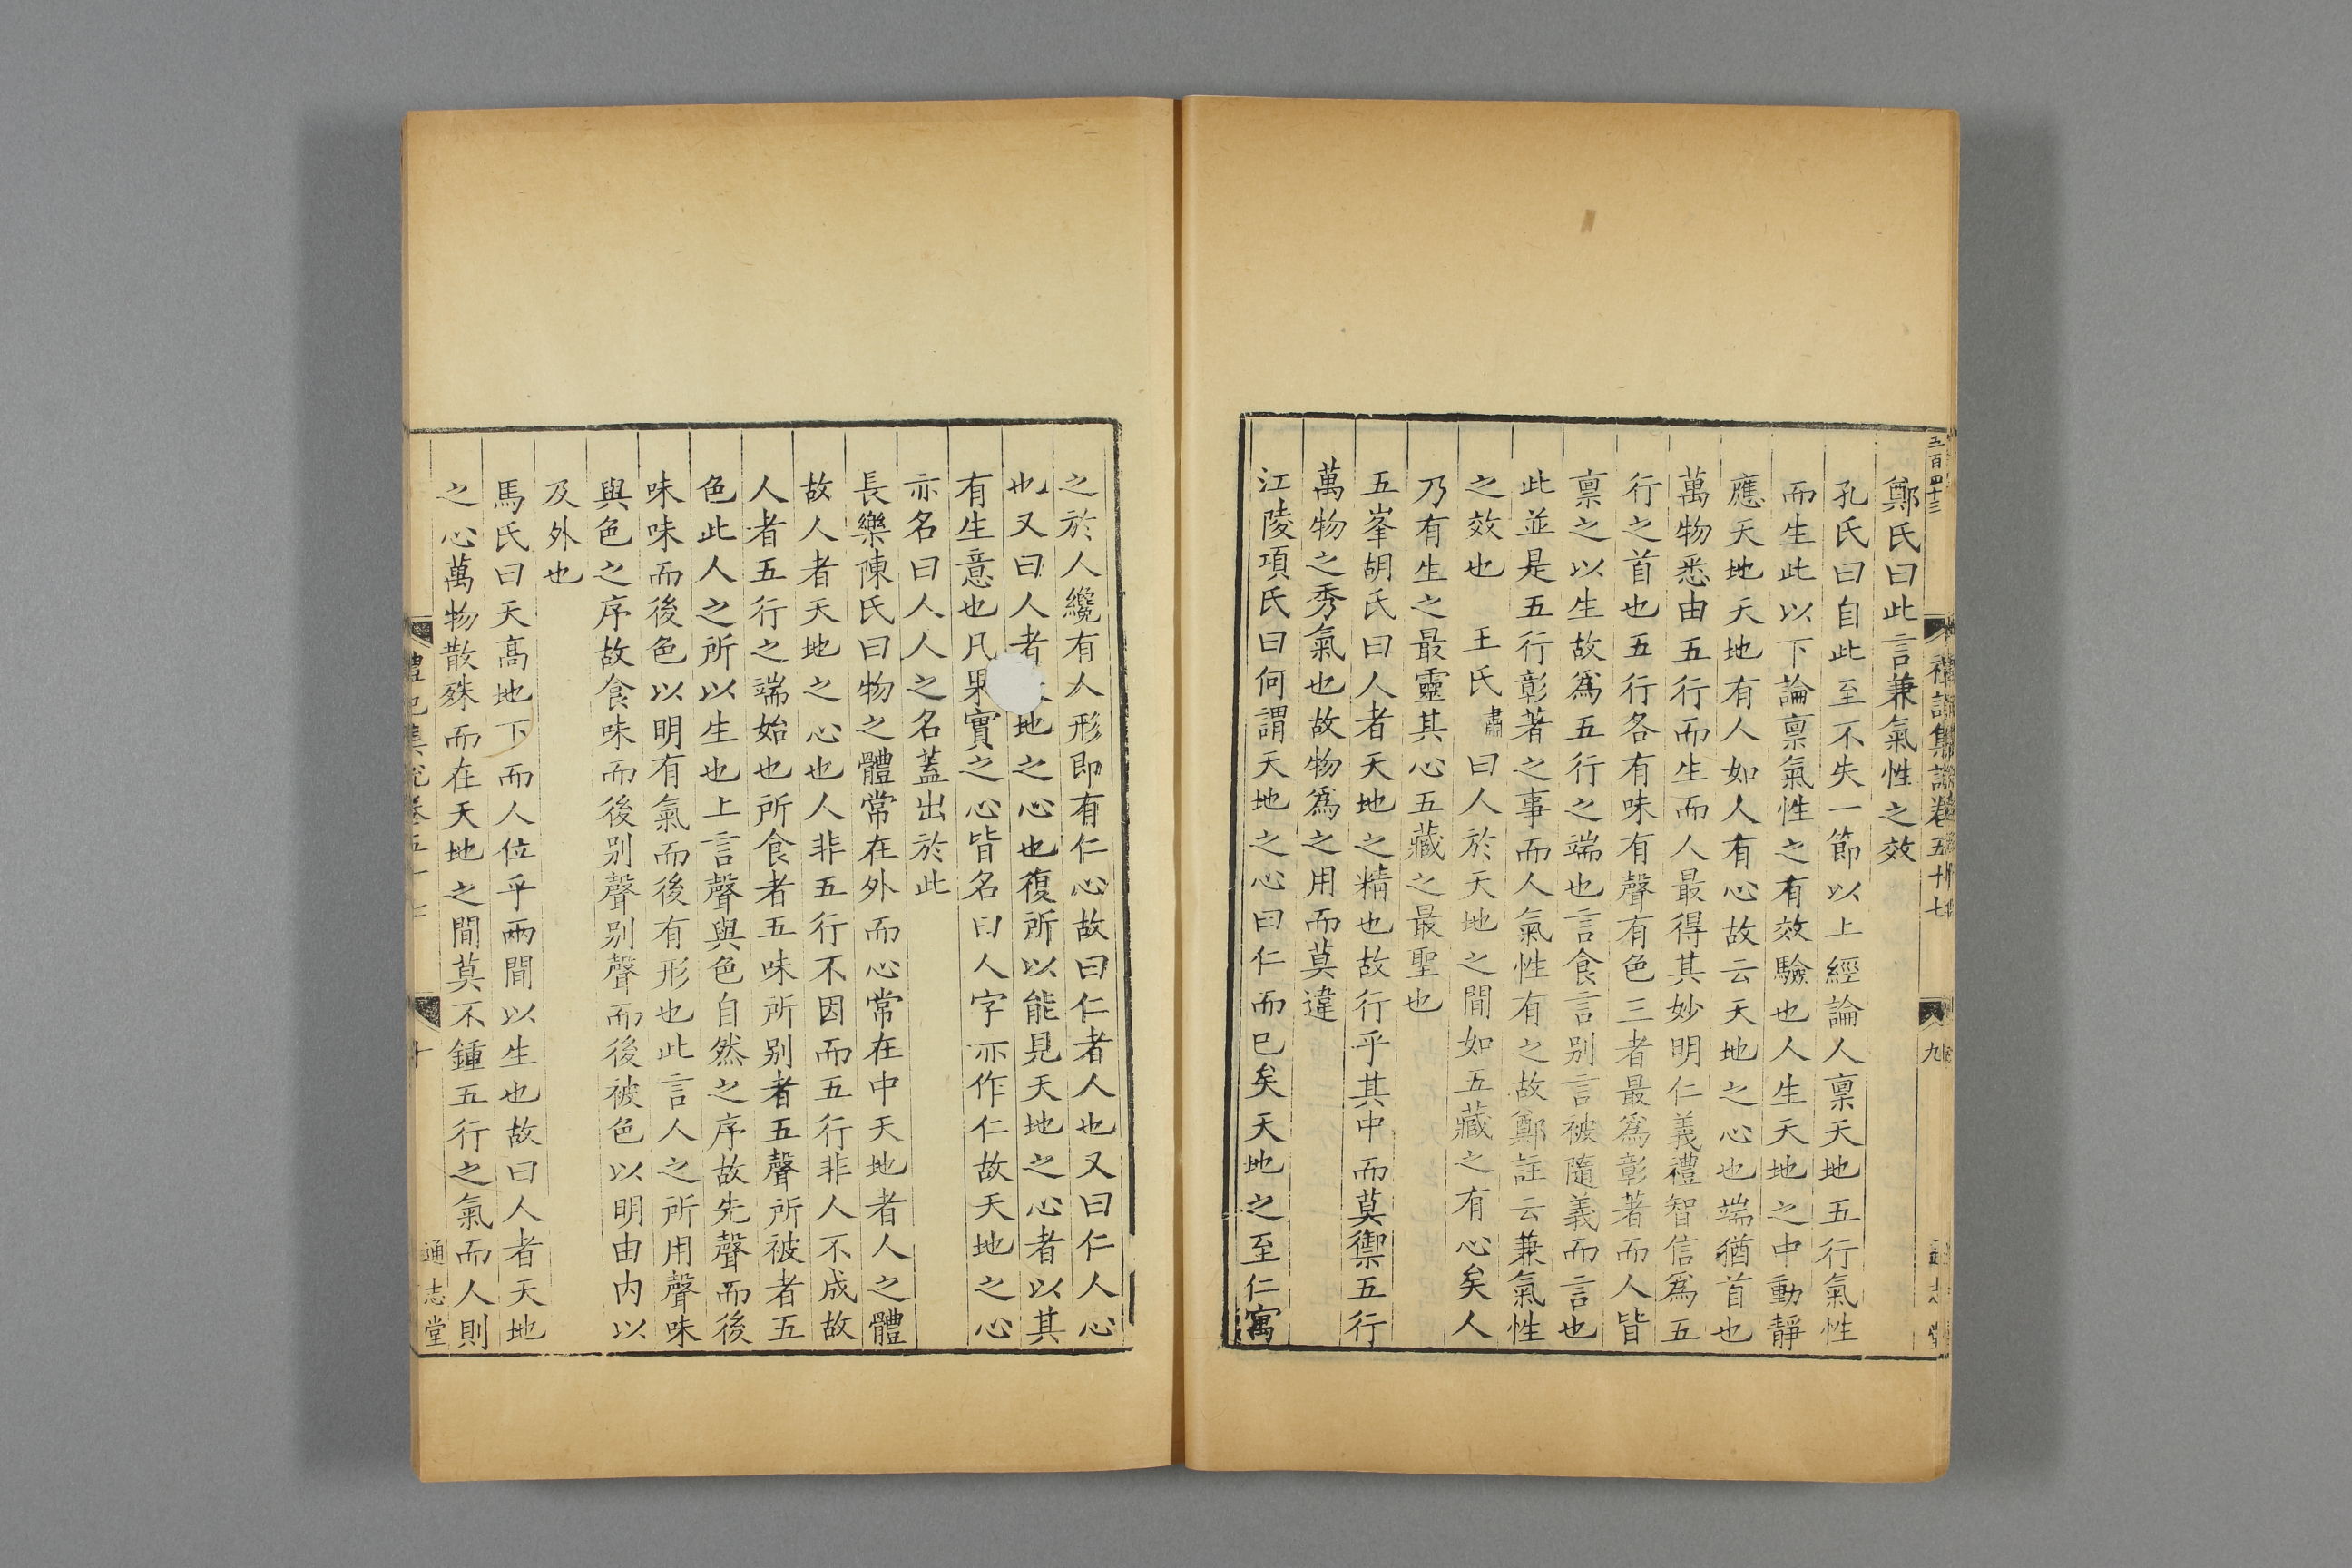 五百四十三
禮記集說卷五十七
九
鄭氏曰此言兼氣性之效
孔氏曰自此至不失一節以上經論人禀天地五行氣性
而生此以下論禀氣性之有效驗也人生天地之中動靜
應天地天地有人如人有心故云天地之心也端猶首也
萬物悉由五行而生而人最得其妙明仁義禮智信爲五
行之首也五行各有味有聲有色三者最爲彰著而人皆
禀之以生故爲五行之端也言食言别言被隨義而言也
此並是五行彰著之事而人氣性有之故鄭註云兼氣性
之效也 王氏肅曰人於天地之間如五藏之有心矣人
乃有生之最靈其心五藏之最聖也
五峯胡氏曰人者天地之精也故行乎其中而莫禦五行
萬物之秀氣也故物爲之用而莫違
江陵項氏曰何謂天地之心曰仁而已矣天地之至仁寓
之於人纔有人形即有仁心故曰仁者人也又曰仁人心
也又曰人者地之心也復所以能見天地之心者以其
有生意也凡果實之心皆名曰人字亦作仁故天地之心
亦名曰人人之名蓋出於此
長樂陳氏曰物之體常在外而心常在中天地者人之體
故人者天地之心也人非五行不因而五行非人不成故
人者五行之端始也所食者五味所别者五聲所被者五
色此人之所以生也上言聲與色自然之序故先聲而後
味味而後色以明有氣而後有形也此言人之所用聲味
與色之序故食味而後别聲别聲而後被色以明由内以
及外也
馬氏曰天髙地下而人位乎兩間以生也故曰人者天地
之心萬物散殊而在天地之間莫不鍾五行之氣而人則
十
通志堂